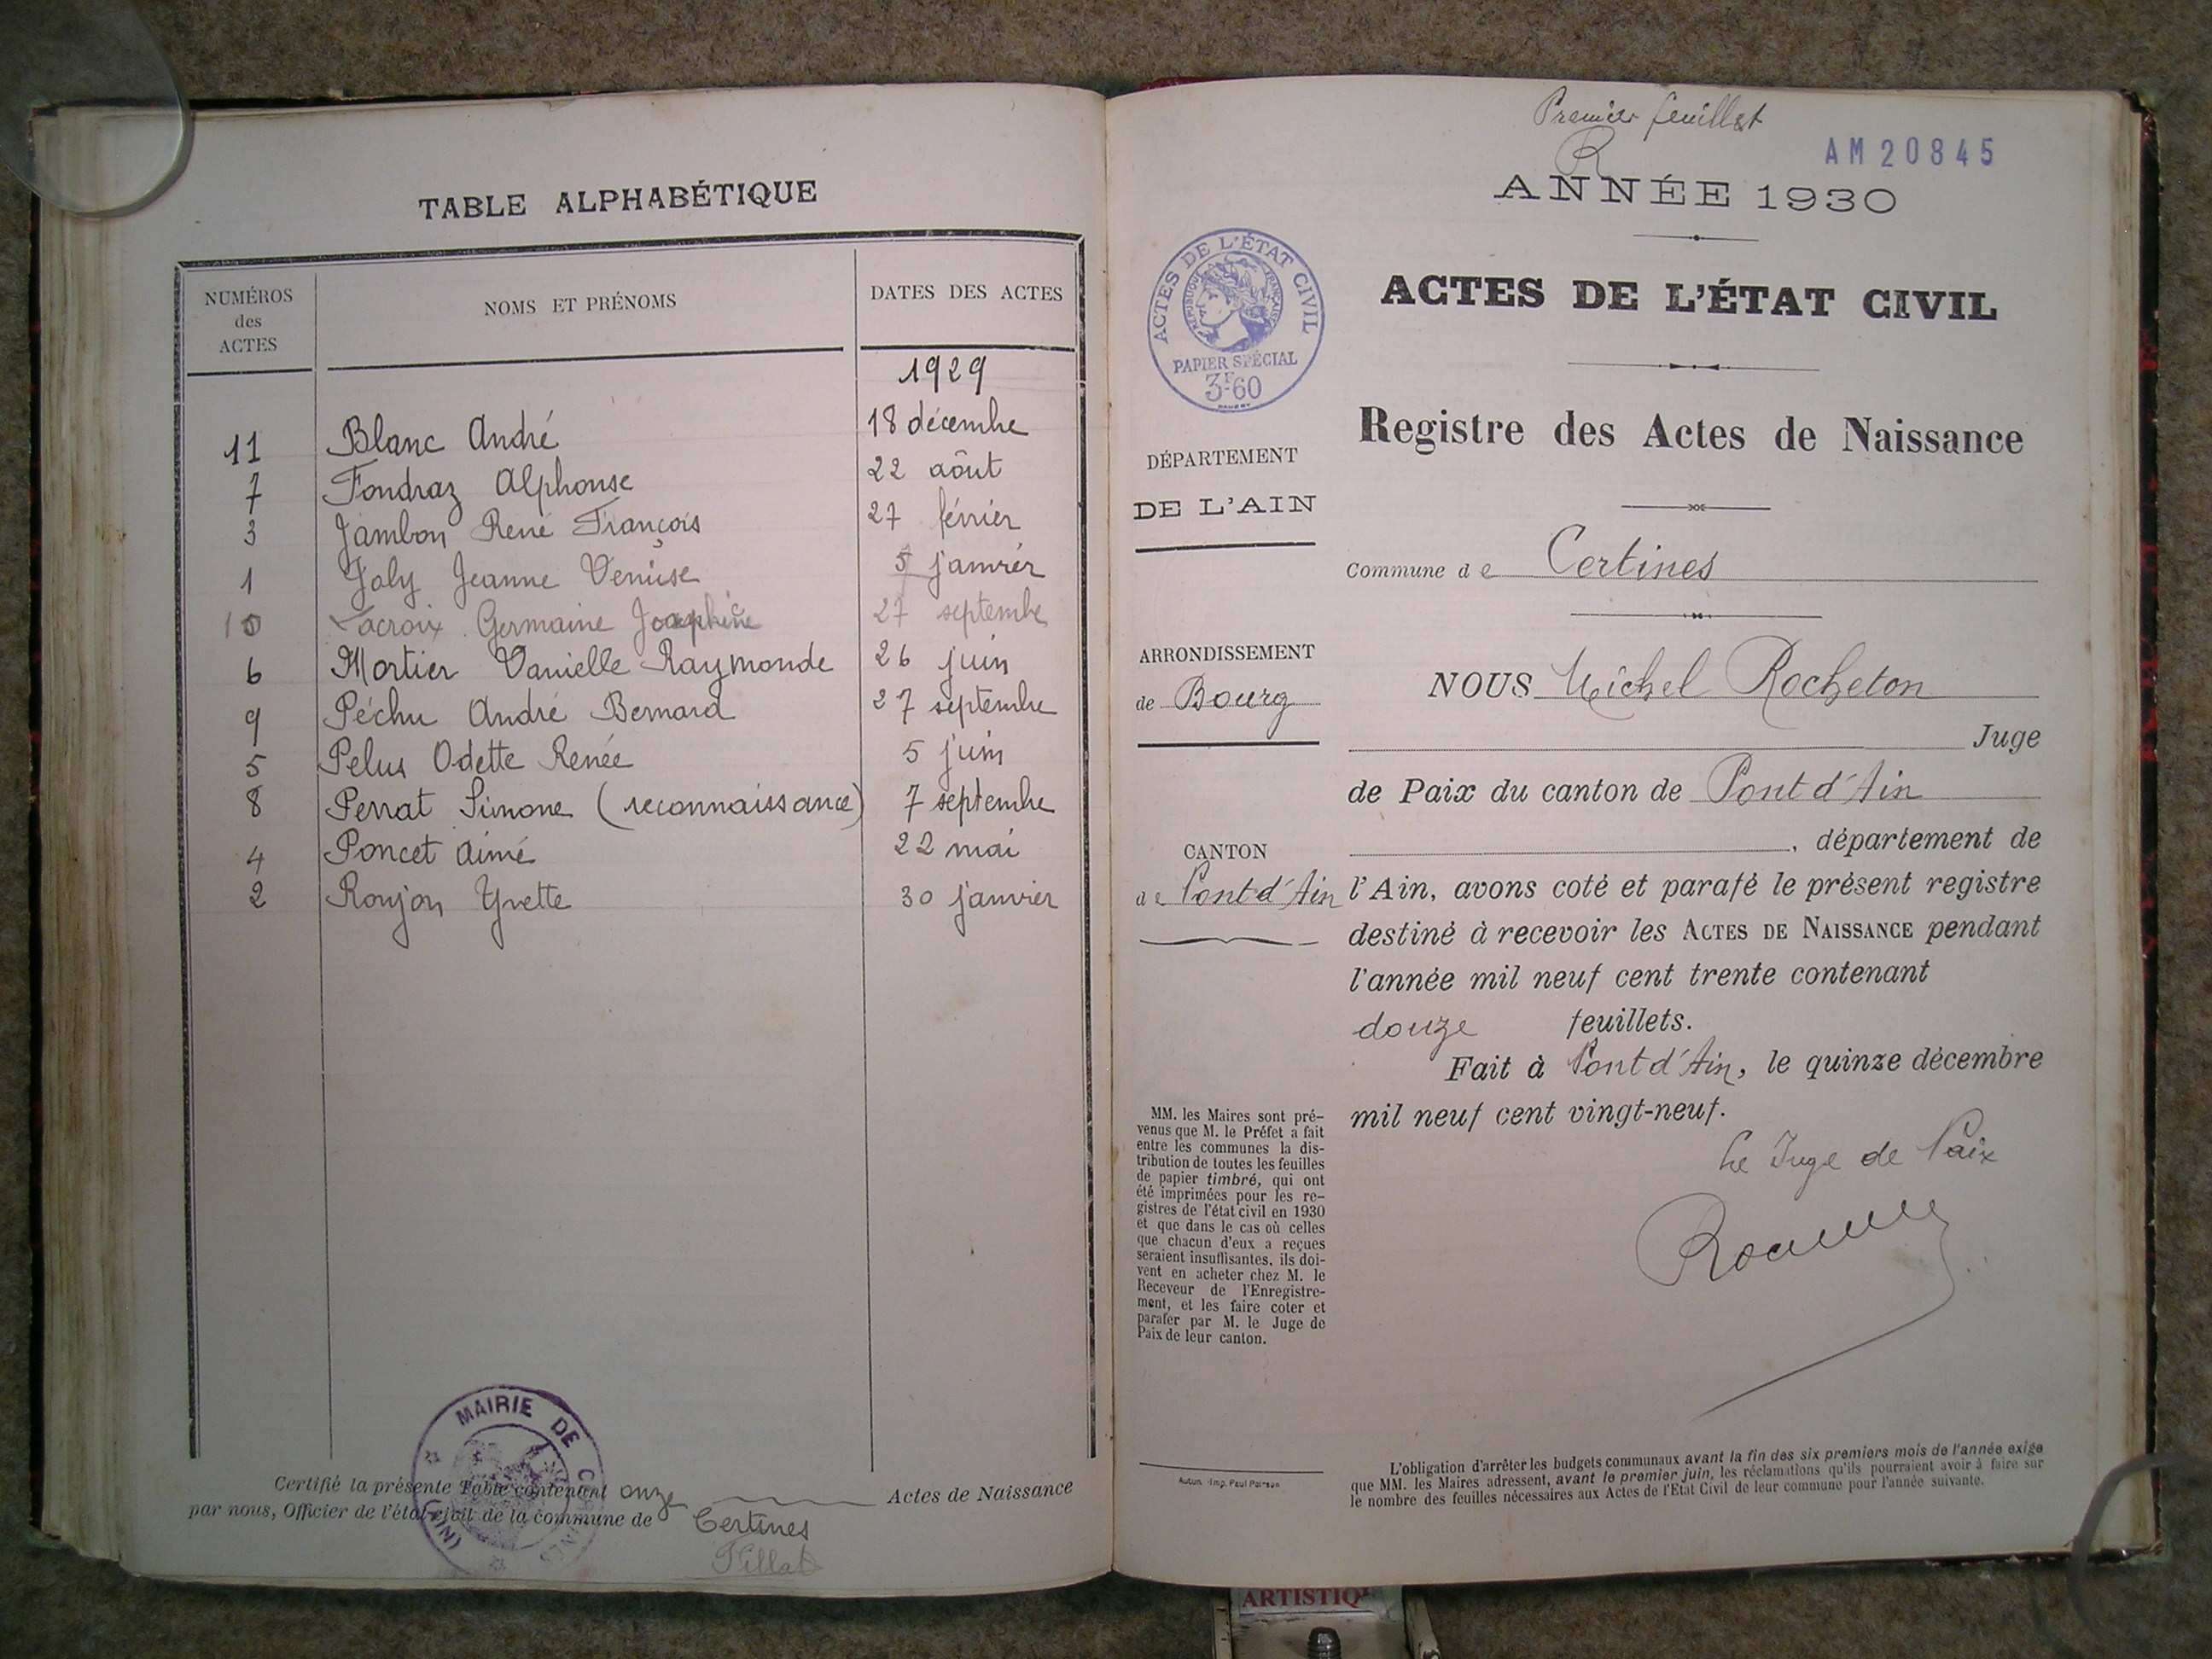 TABLE ALPHABÉTIQUE
NUMÉROS des ACTES
NOMS ET PRÉNOMS
DATES DES ACTES
1929
11 Blanc André 18 décembre
7 Fondraz Alphonse 22 août
3 Jambon René François 27 février
1 Joly Jeanne Denise 5 janvier
10 Lacroix Germaine Joséphine 27 septembre
6 Mortier Danielle Raymonde 26 juin
9 Péchu André Bernard 27 septembre
5 Pelus Odette Renée 5 juin
8 Perrat Simone (reconnaissance) 7 septembre
4 Poncet Aimé 22 mai
2 Roujon Yvette 30 janvier
MAIRIE DE CERTINES
(AIN)
Certifié la présente Table contenant onze Actes de Naissance
par nous, Officier de l'état-civil de la commune de Certines
Premier feuillet
R
AM20845
ANNÉE 1930
ACTES DE L'ÉTAT CIVIL
RÉPUBLIQUE FRANÇAISE
PAPIER SPÉCIAL
3F60
ACTES DE L'ÉTAT CIVIL
Registre des Actes de Naissance
DÉPARTEMENT
DE L'AIN
Commune de Certines
ARRONDISSEMENT
de Bourg
CANTON
de Pont d'Ain
NOUS Michel Rocheton
Juge
de Paix du canton de Pont d'Ain
, département de
l'Ain, avons coté et parafé le présent registre
destiné à recevoir les ACTES DE NAISSANCE pendant
l'année mil neuf cent trente contenant
douze feuillets.
Fait à Pont d'Ain, le quinze décembre
mil neuf cent vingt-neuf.
Le Juge de Paix
MM. les Maires sont pré-
venus que M. le Préfet a fait
entre les communes la dis-
tribution de toutes les feuilles
de papier timbré, qui ont
été imprimées pour les re-
gistres de l'état civil en 1930
et que dans le cas où celles
que chacun d'eux a reçues
seraient insuffisantes, ils doi-
vent en acheter chez M. le
Receveur de l'Enregistre-
ment, et les faire coter et
parafer par M. le Juge de
Paix de leur canton.
Autun. -Imp. Paul Poirson
L'obligation d'arrêter les budgets communaux avant la fin des six premiers mois de l'année exige
que MM. les Maires adressent, avant le premier juin, les réclamations qu'ils pourraient avoir à faire sur
le nombre des feuilles nécessaires aux Actes de l'Etat Civil de leur commune pour l'année suivante.
ARTISTIQ